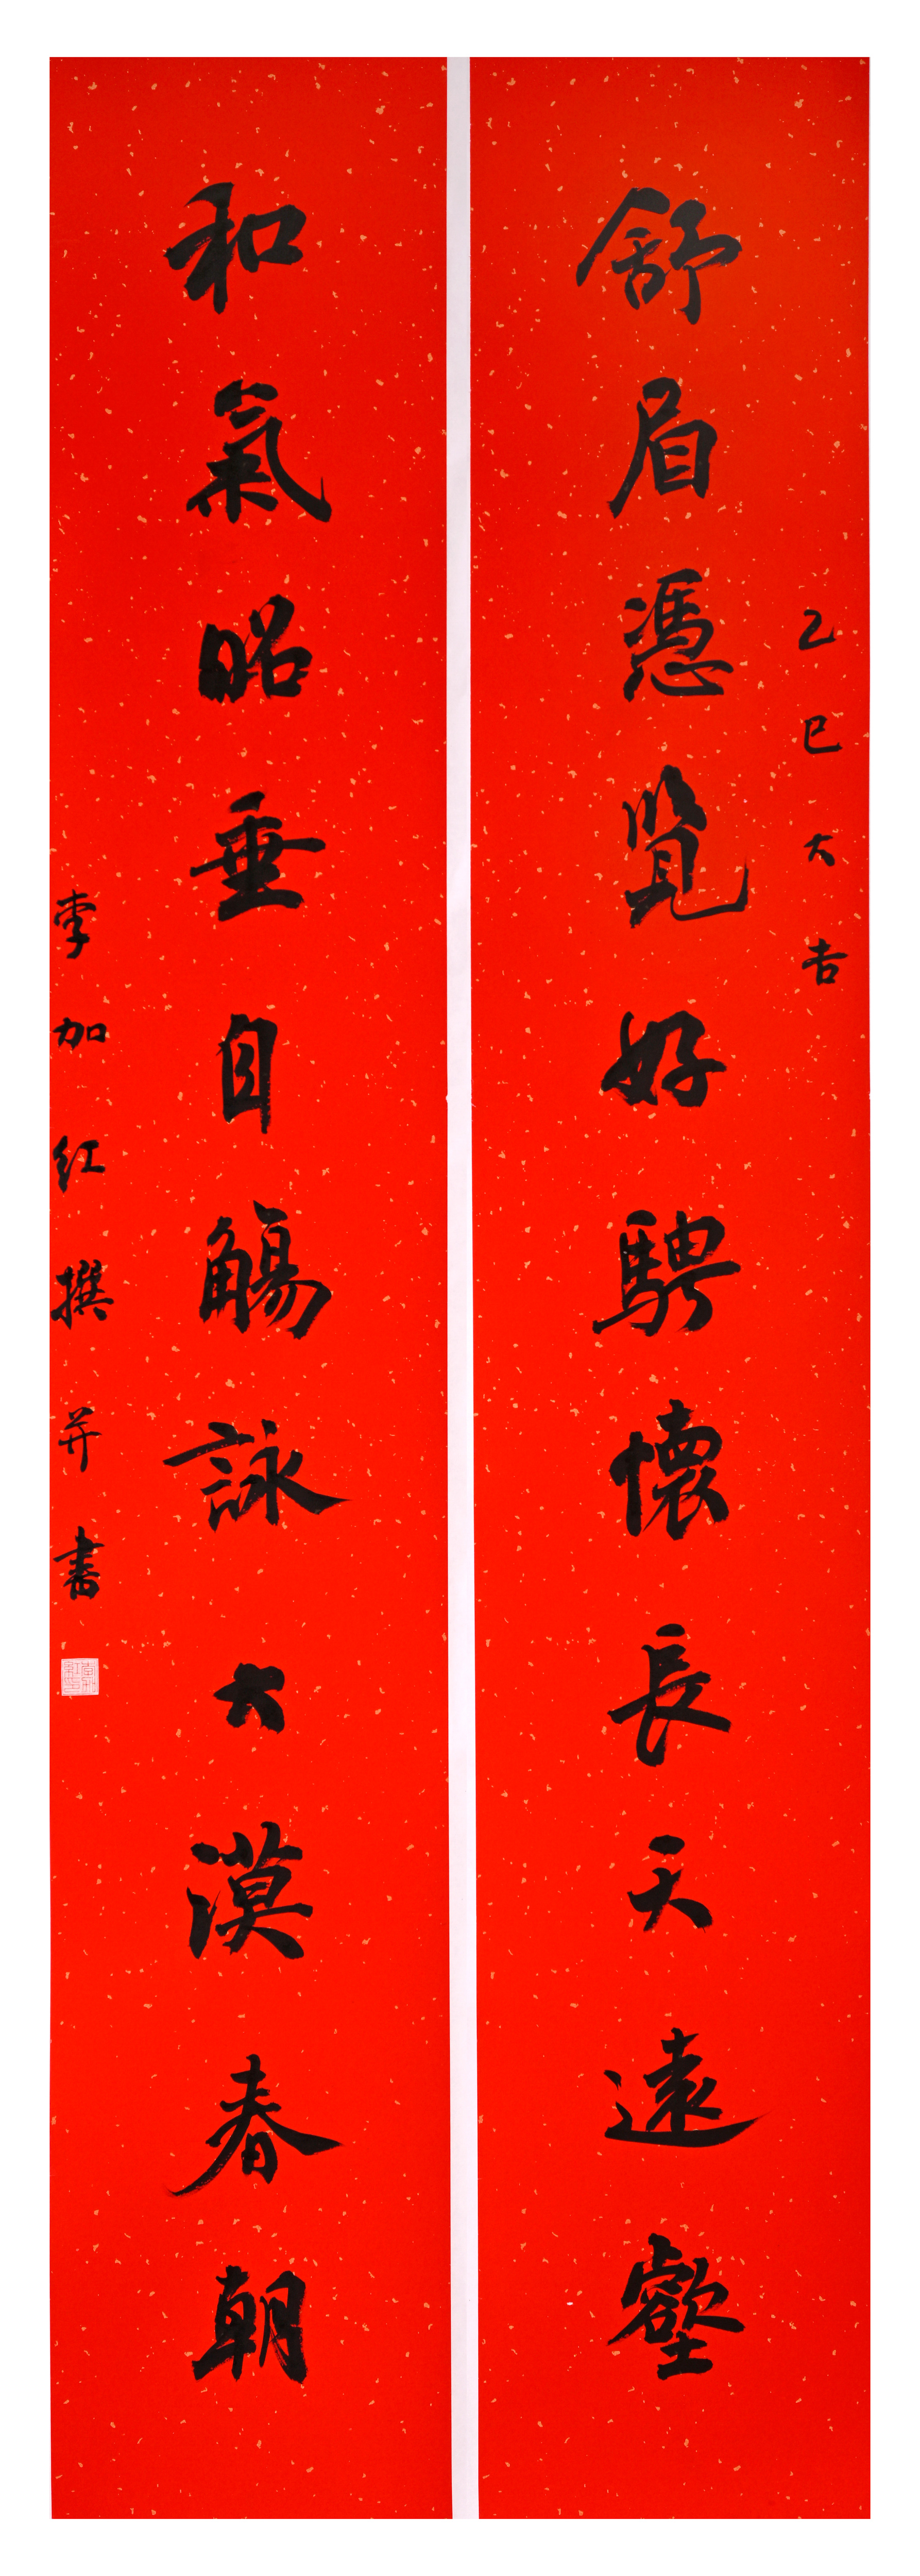 乙巳大吉
舒眉憑覽好騁懷長天遠壑
和氣昭垂自觴詠大漠春朝
李加红撰并書